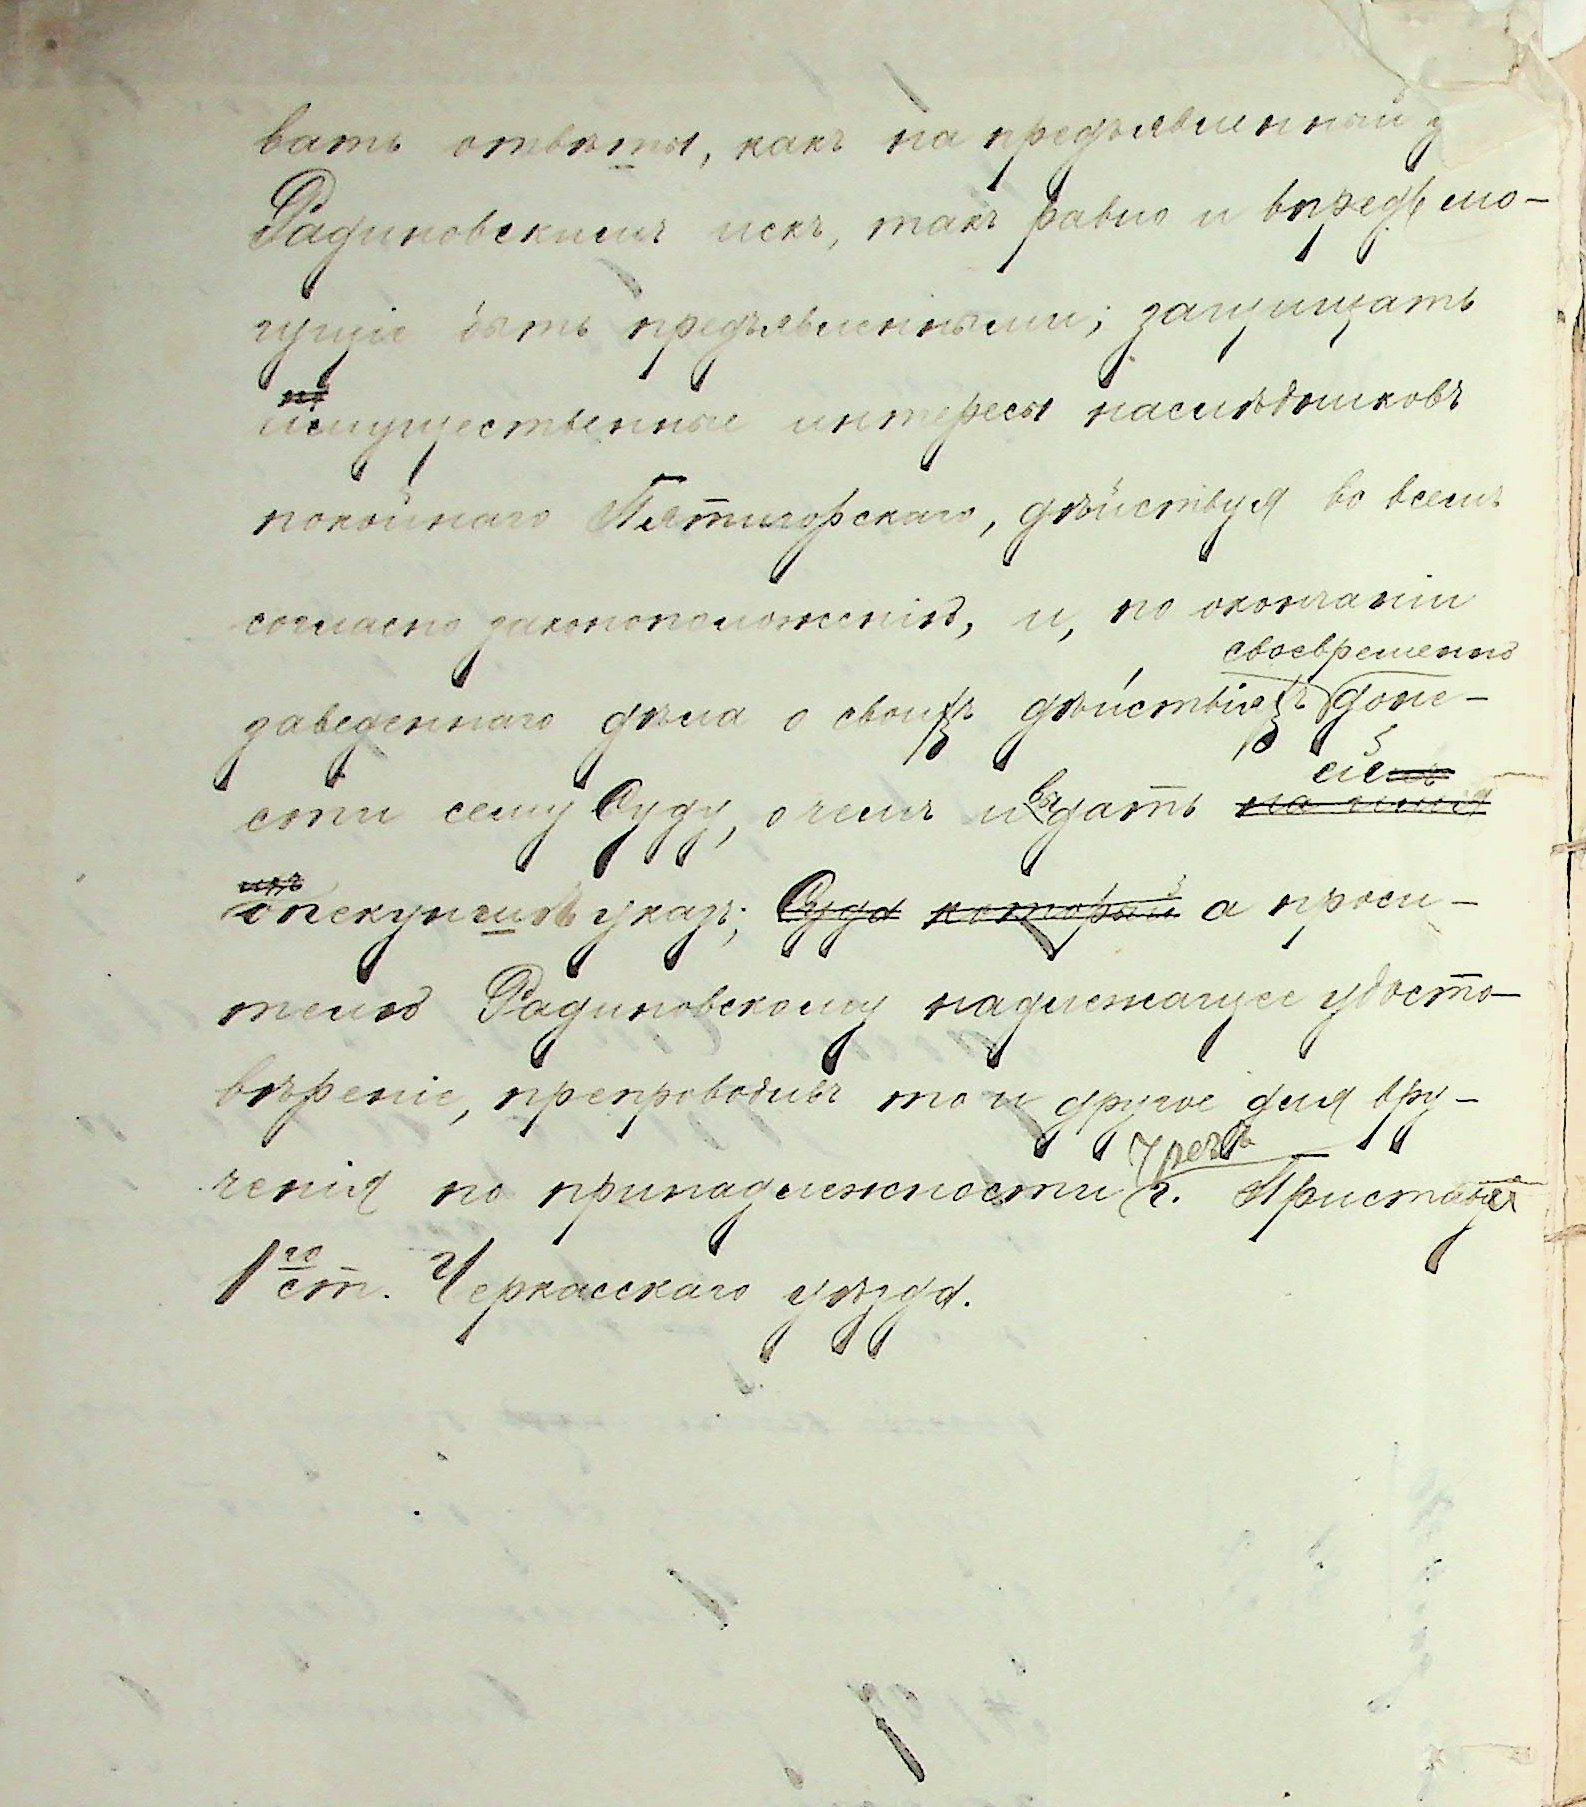 вать отвѣты, какъ на предъявленный
Радиновскимъ искъ, такъ равно и впредь мо-
гущіе быть предъявленными; защищать
имущественные интересы наслѣдниковъ
покойнаго Пятигорскаго, дѣйствуя во всемъ
согласно законоположенію, и, по окончаніи
своевременно
заведеннаго дѣла о своихъ дѣйствіяхъ доне-
сти сему Суду, о чемъ и выдать
ей
опекуншѣ указъ; Суда который а проси-
телю Радиновскому надлежащее удосто-
вѣреніе, препроводивъ то и другое для вру-
чрезъ
ченія по принадлежности г. Пристава
1го ст. Черкасскаго уѣзда.